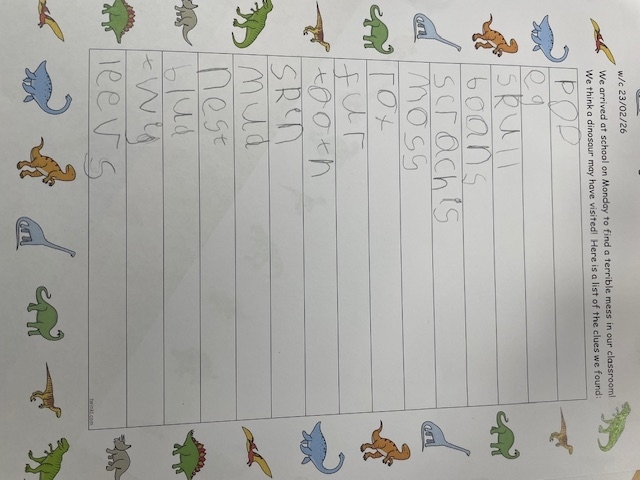 w/c 23/02/26
We arrived at school on Monday to find a terrible mess in our classroom!
We think a dinosaur may have visited! Here is a list of the clues we found:
poo
eg
skull
boans
scrachis
moss
rox
fur
tooth
skin
mud
nest
blud
twig
leevs
twinkl.com